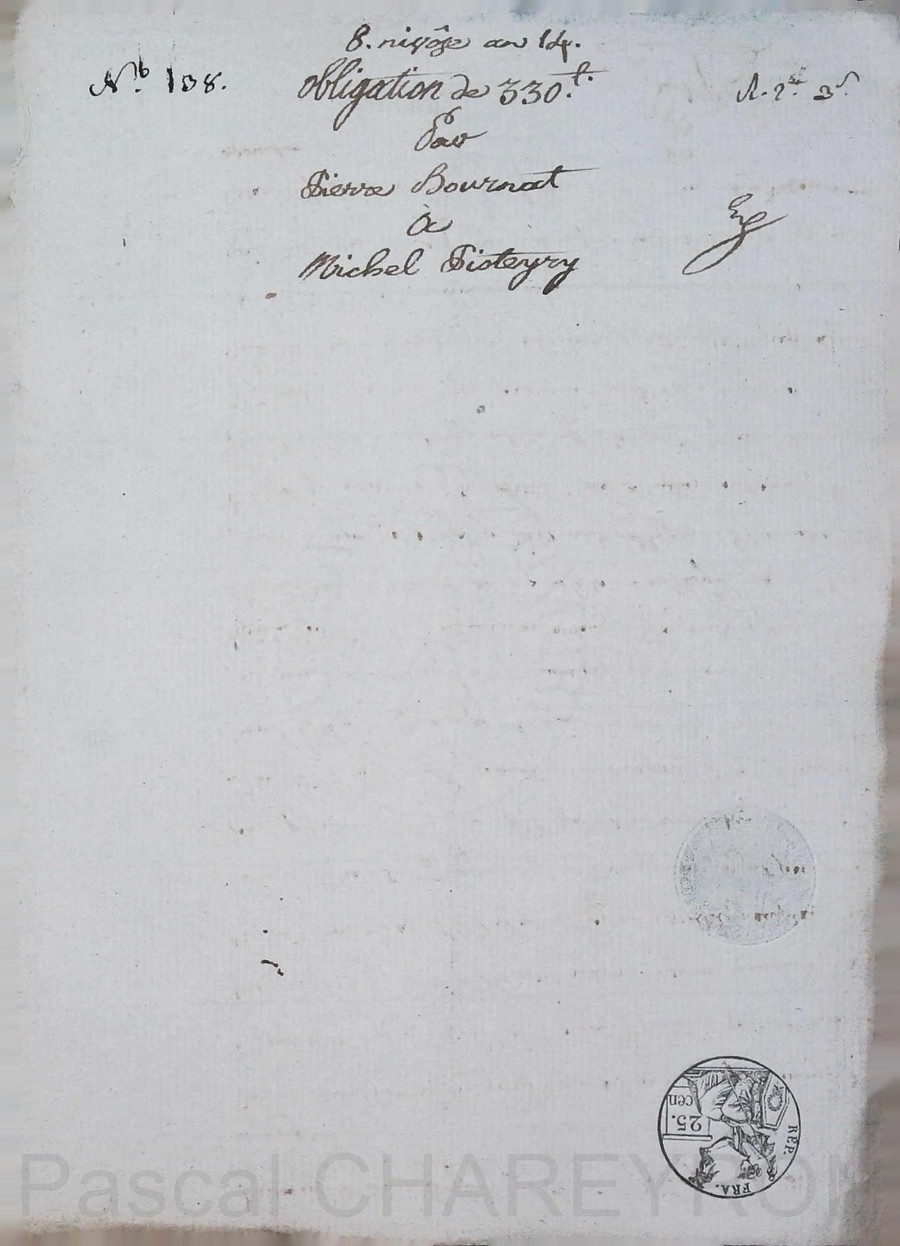 8. nivôse an 14.
Nº. 138.
obligation de 330.ᶠ.
R. 2ᵉ. 3ᵈ.
Par
Pierre Bournat
à
Michel Pisteyry
25.
cen
REP.
FRA.
Pascal CHAREYRON